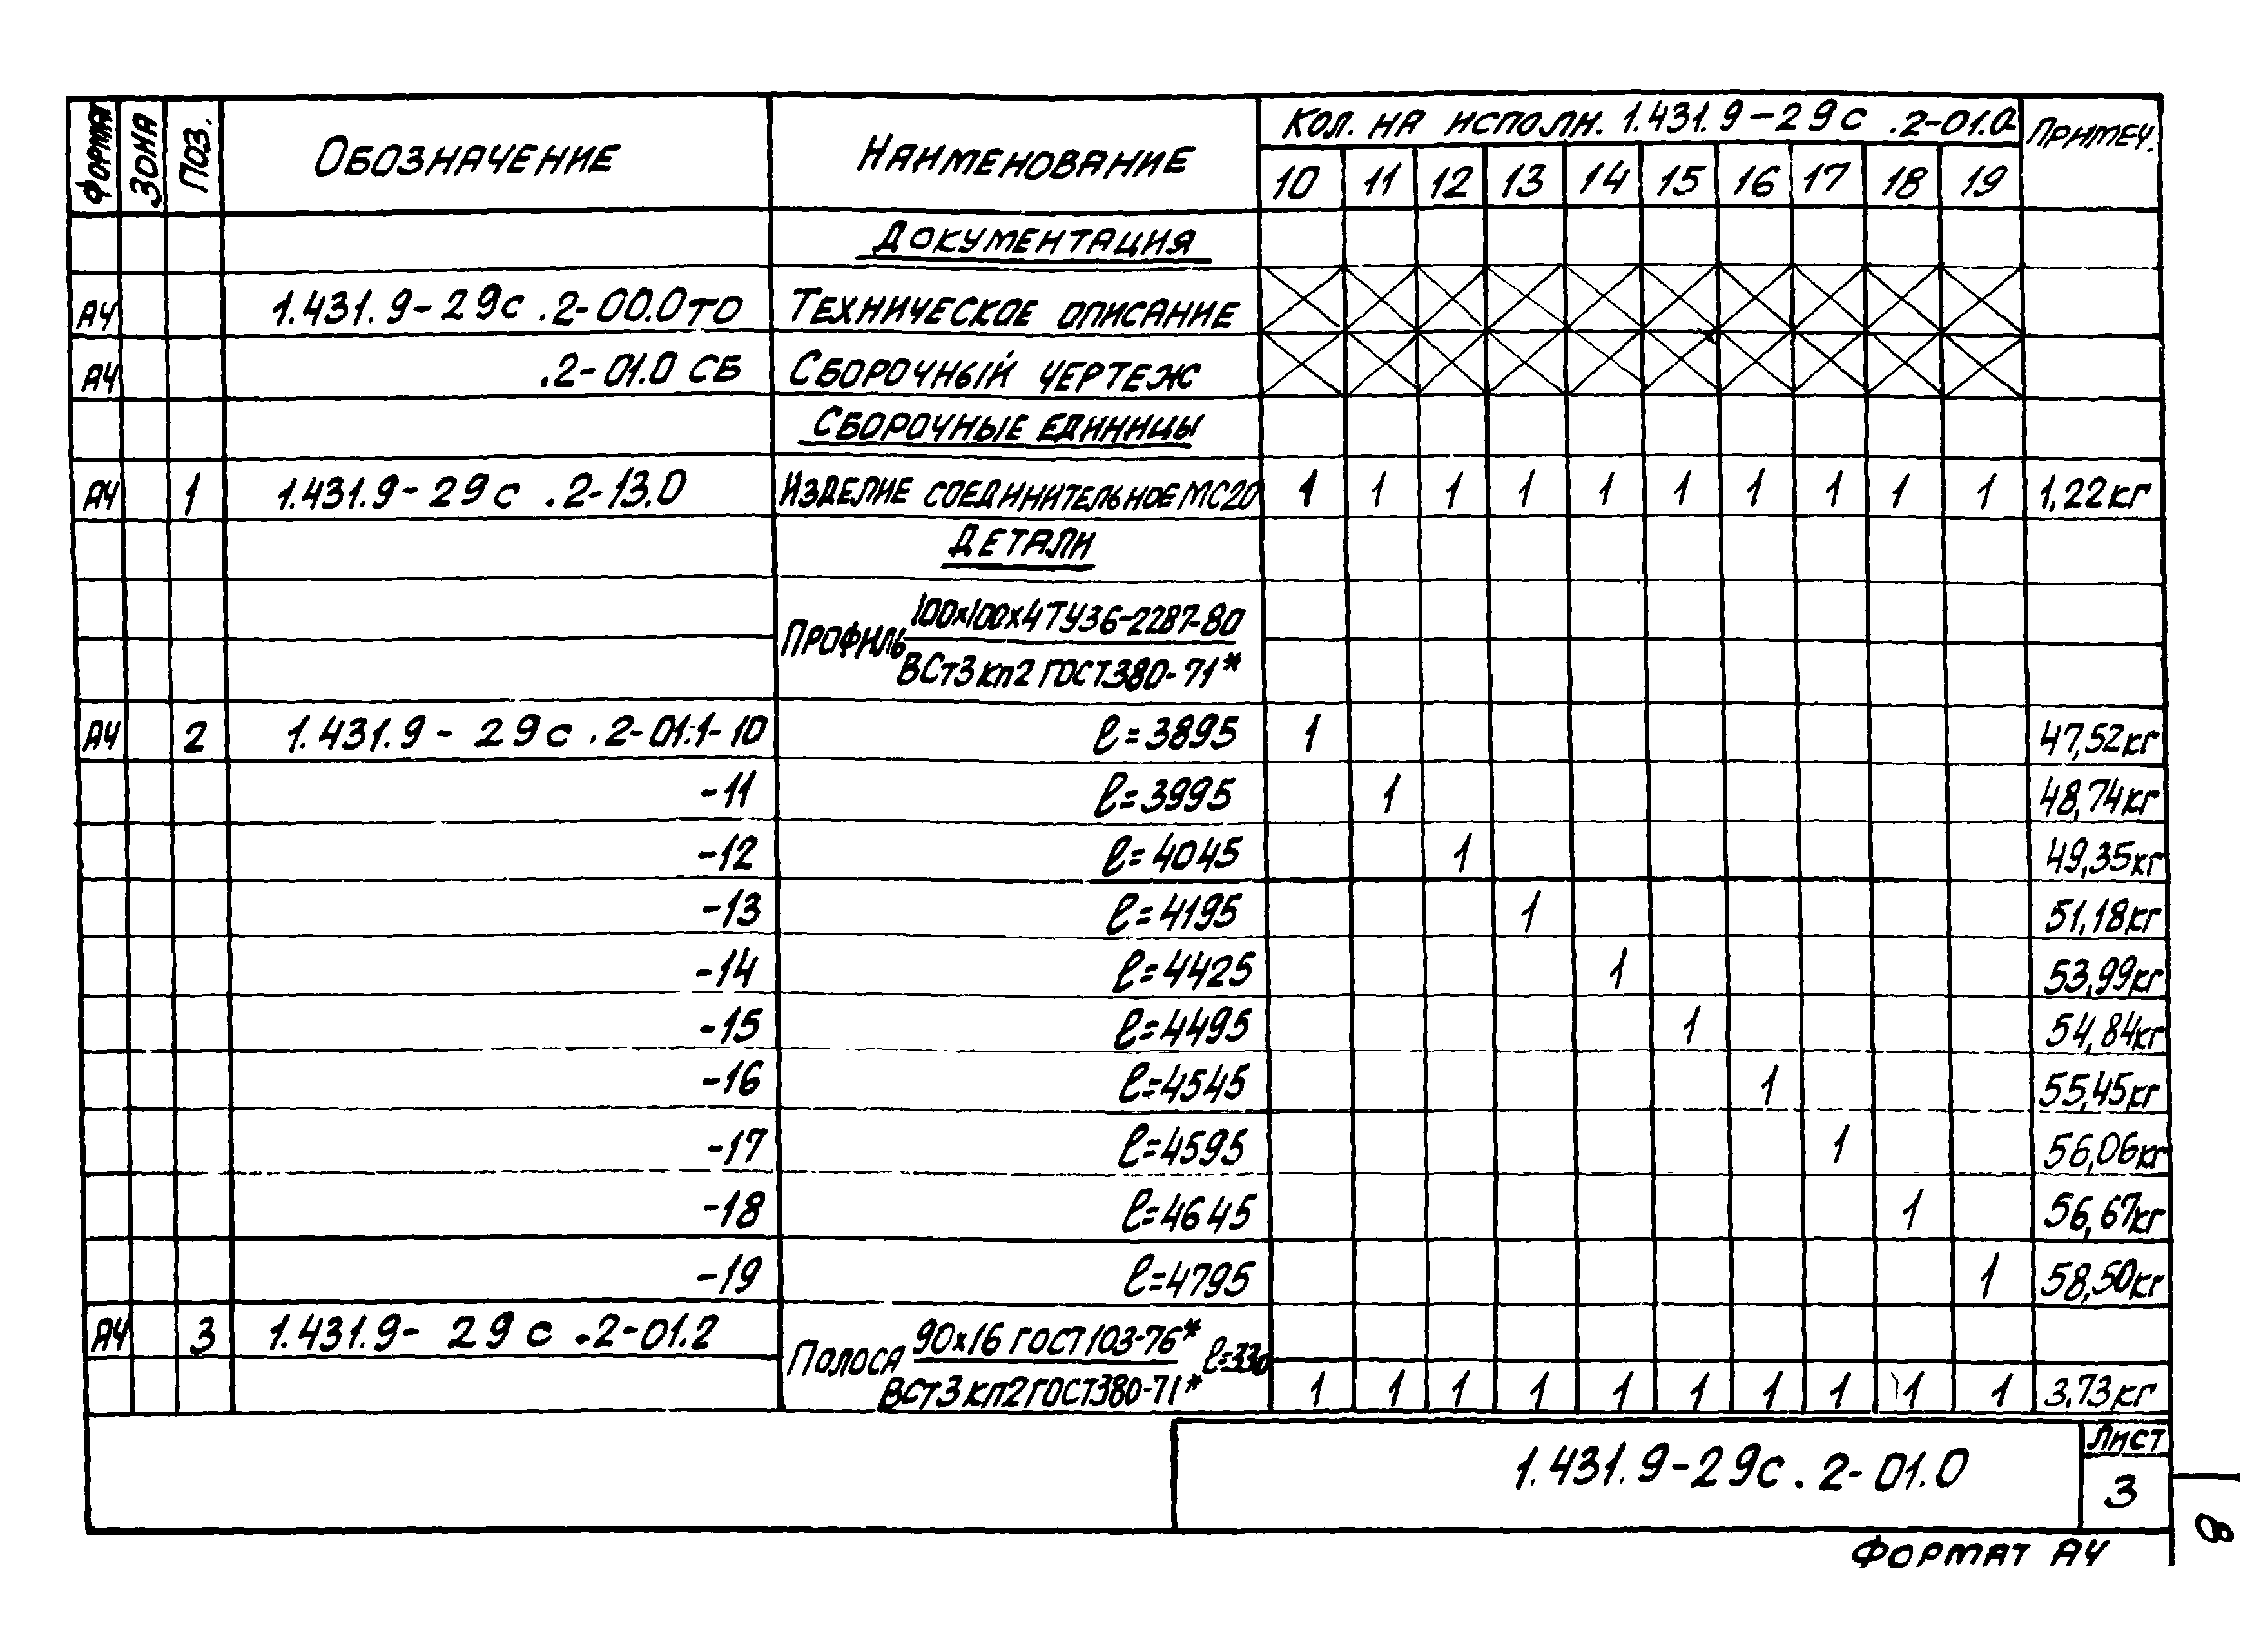 Форма Зона Поз. Обозначение Наименование Кол. на исполн. 1.431.9-29с .2-01.0- Примеч.
10 11 12 13 14 15 16 17 18 19
Документация
А4 1.431.9-29с .2-00.0ТО Техническое описание
А4 .2-01.0 СБ Сборочный чертеж
Сборочные единицы
А4 1 1.431.9-29с .2-13.0 Изделие соединительное МС20 1 1 1 1 1 1 1 1 1 1 1,22кг
Детали
Профиль 100х100х4 ТУ36-2287-80
ВСт3кп2 ГОСТ380-71*
А4 2 1.431.9-29с .2-01.1-10 ℓ=3895 1 47,52кг
-11 ℓ=3995 1 48,74кг
-12 ℓ=4045 1 49,35кг
-13 ℓ=4195 1 51,18кг
-14 ℓ=4425 1 53,99кг
-15 ℓ=4495 1 54,84кг
-16 ℓ=4545 1 55,45кг
-17 ℓ=4595 1 56,06кг
-18 ℓ=4645 1 56,67кг
-19 ℓ=4795 1 58,50кг
А4 3 1.431.9-29с .2-01.2 Полоса 90х16 ГОСТ103-76* ℓ=330
ВСт3кп2ГОСТ380-71* 1 1 1 1 1 1 1 1 1 1 3,73кг
1.431.9-29с.2-01.0 Лист
3
Формат А4
8